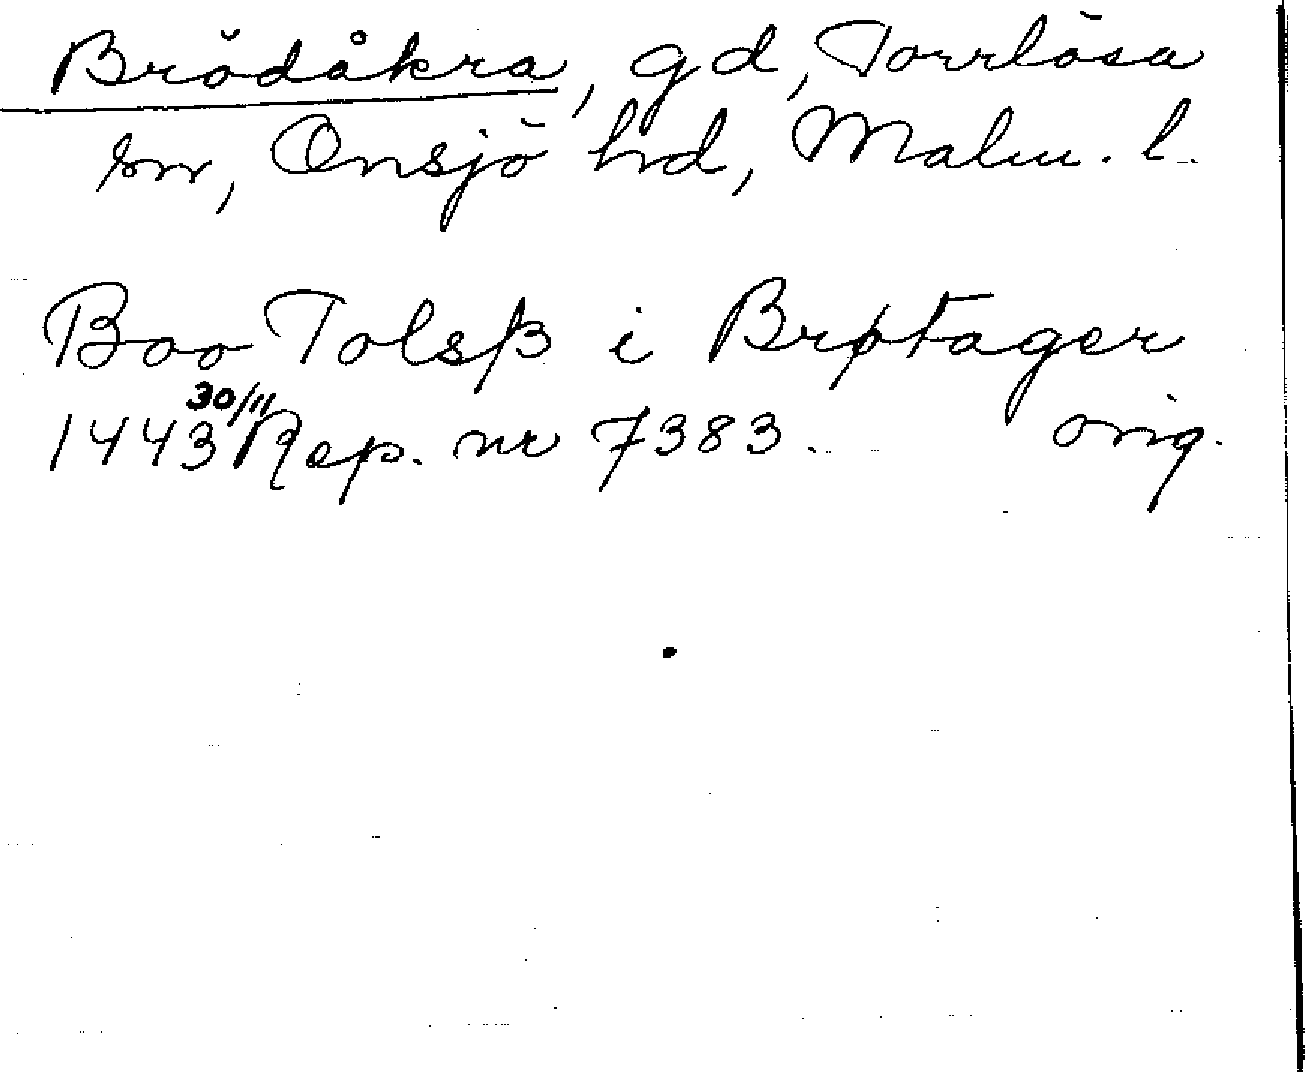 Brödåkra, gd, Torrlösa
sn, Onsjö hd, Malm. l.
Boo Tolsß i Brøtager
1443 30/11 Rep. nr 7383. orig.